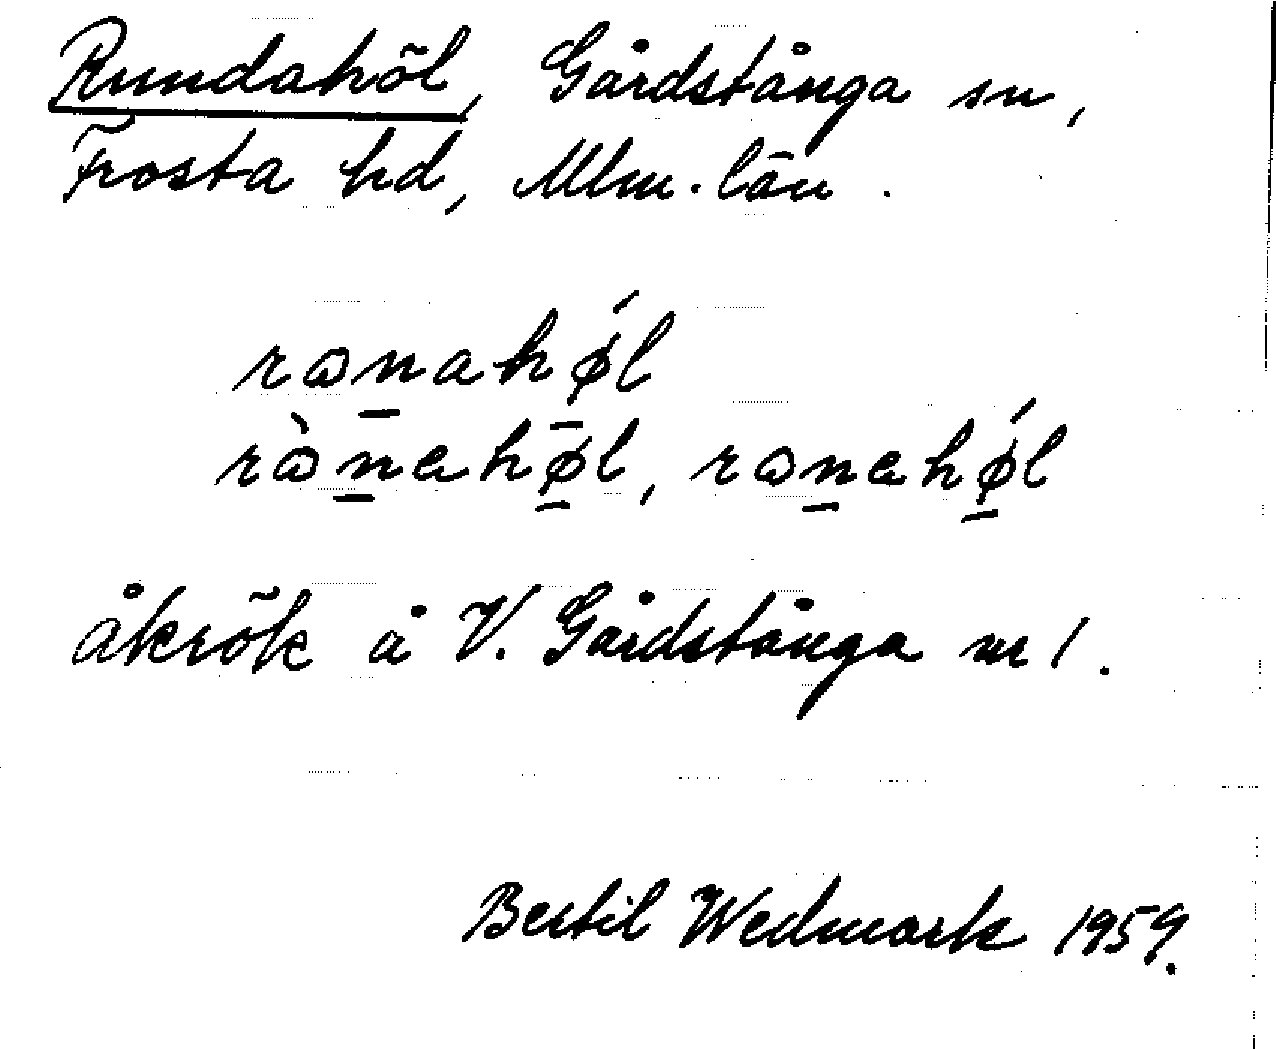 Rundahöl, Gårdstånga sn,
Frosta hd, Mlm. län.
rωn̲ahǿ̲l
rὼn̲ɐhø̲l, rωn̲ɐhǿ̲l
åkrök å V. Gårdstånga nr 1.
Bertil Wedmark 1959.